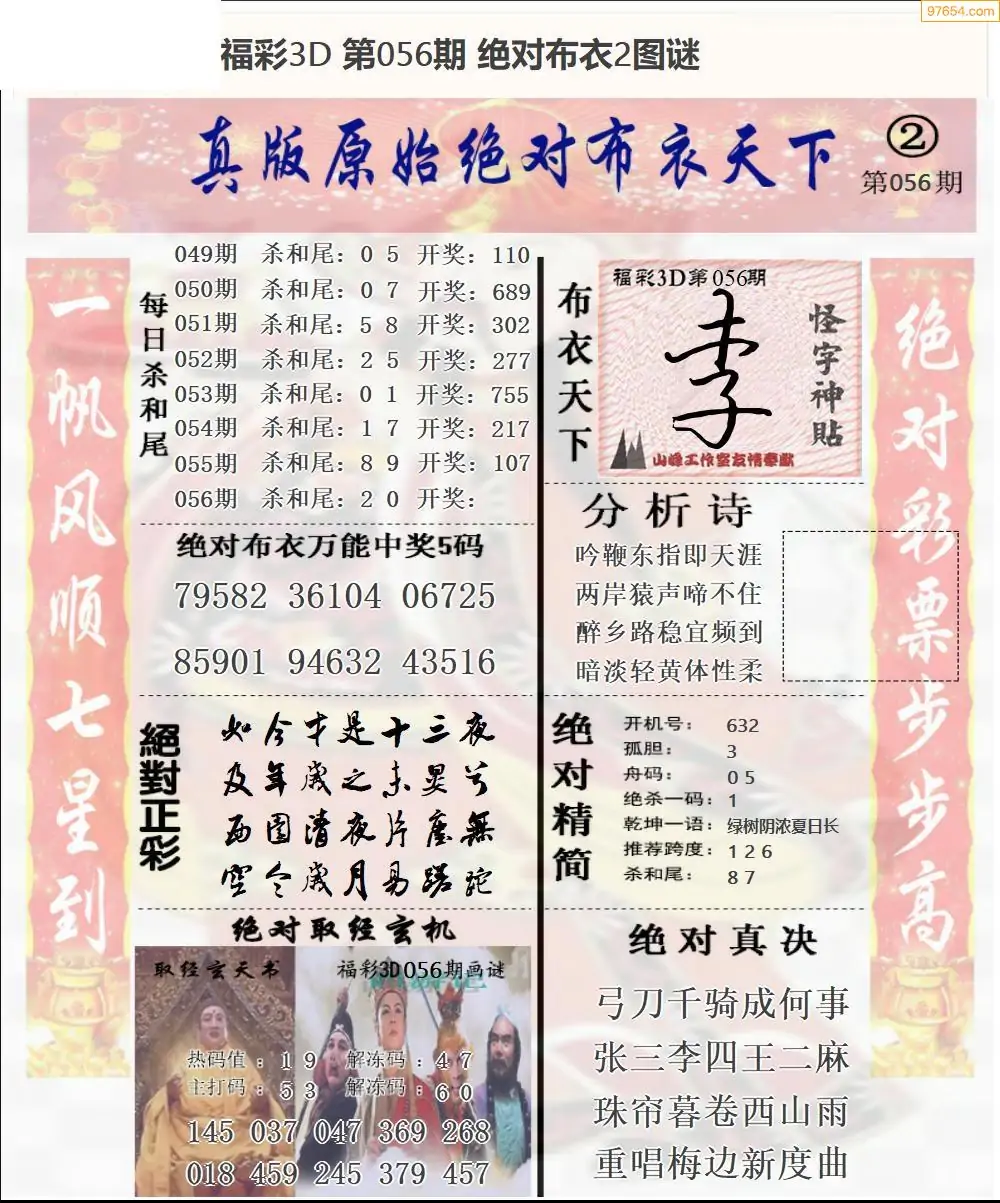 97654.com
福彩3D 第056期 绝对布衣2图谜
真版原始绝对布衣天下
②
第056期
一帆风顺七星到
每日杀和尾
049期 杀和尾：0 5 开奖：110
050期 杀和尾：0 7 开奖：689
051期 杀和尾：5 8 开奖：302
052期 杀和尾：2 5 开奖：277
053期 杀和尾：0 1 开奖：755
054期 杀和尾：1 7 开奖：217
055期 杀和尾：8 9 开奖：107
056期 杀和尾：2 0 开奖：
绝对布衣万能中奖5码
79582 36104 06725
85901 94632 43516
絕對正彩
如今才是十三夜
及年歲之未晏兮
西園清夜片塵無
空令歲月易蹉跎
绝对取经玄机
取经玄天书
福彩3D056期画谜
热码值：1 9 解冻码：4 7
主打码：5 3 解冻码：6 0
145 037 047 369 268
018 459 245 379 457
布衣天下
福彩3D第056期
李
怪字神贴
山峰工作室友情奉献
分析诗
吟鞭东指即天涯
两岸猿声啼不住
醉乡路稳宜频到
暗淡轻黄体性柔
绝对精简
开机号： 632
孤胆： 3
舟码： 0 5
绝杀一码：1
乾坤一语：绿树阴浓夏日长
推荐跨度：1 2 6
杀和尾： 8 7
绝对真决
弓刀千骑成何事
张三李四王二麻
珠帘暮卷西山雨
重唱梅边新度曲
绝对彩票步步高